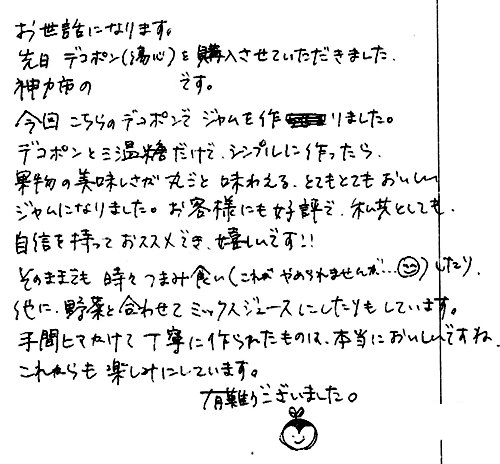 お世話になります。
先日 デコポン(訳心)を購入させていただきました.
神力市の です。
今回 こちらのデコポンで ジャムを作りました。
デコポンと三温糖だけで、シンプルに作ったら、
果物の美味しさが丸ごと味わえる、とてもとてもおいしい
ジャムになりました。お客様にも好評で、私共としても、
自信を持っておススメでき、嬉しいです!!
そのままでも 時々つまみ食い(これが やめられませんが…☺)したり、
他に、野菜と合わせてミックスジュースにしたりもしています。
手間ヒマかけて丁寧に作られたものは、本当においしいですね。
これからも楽しみにしています。
有難うございました。